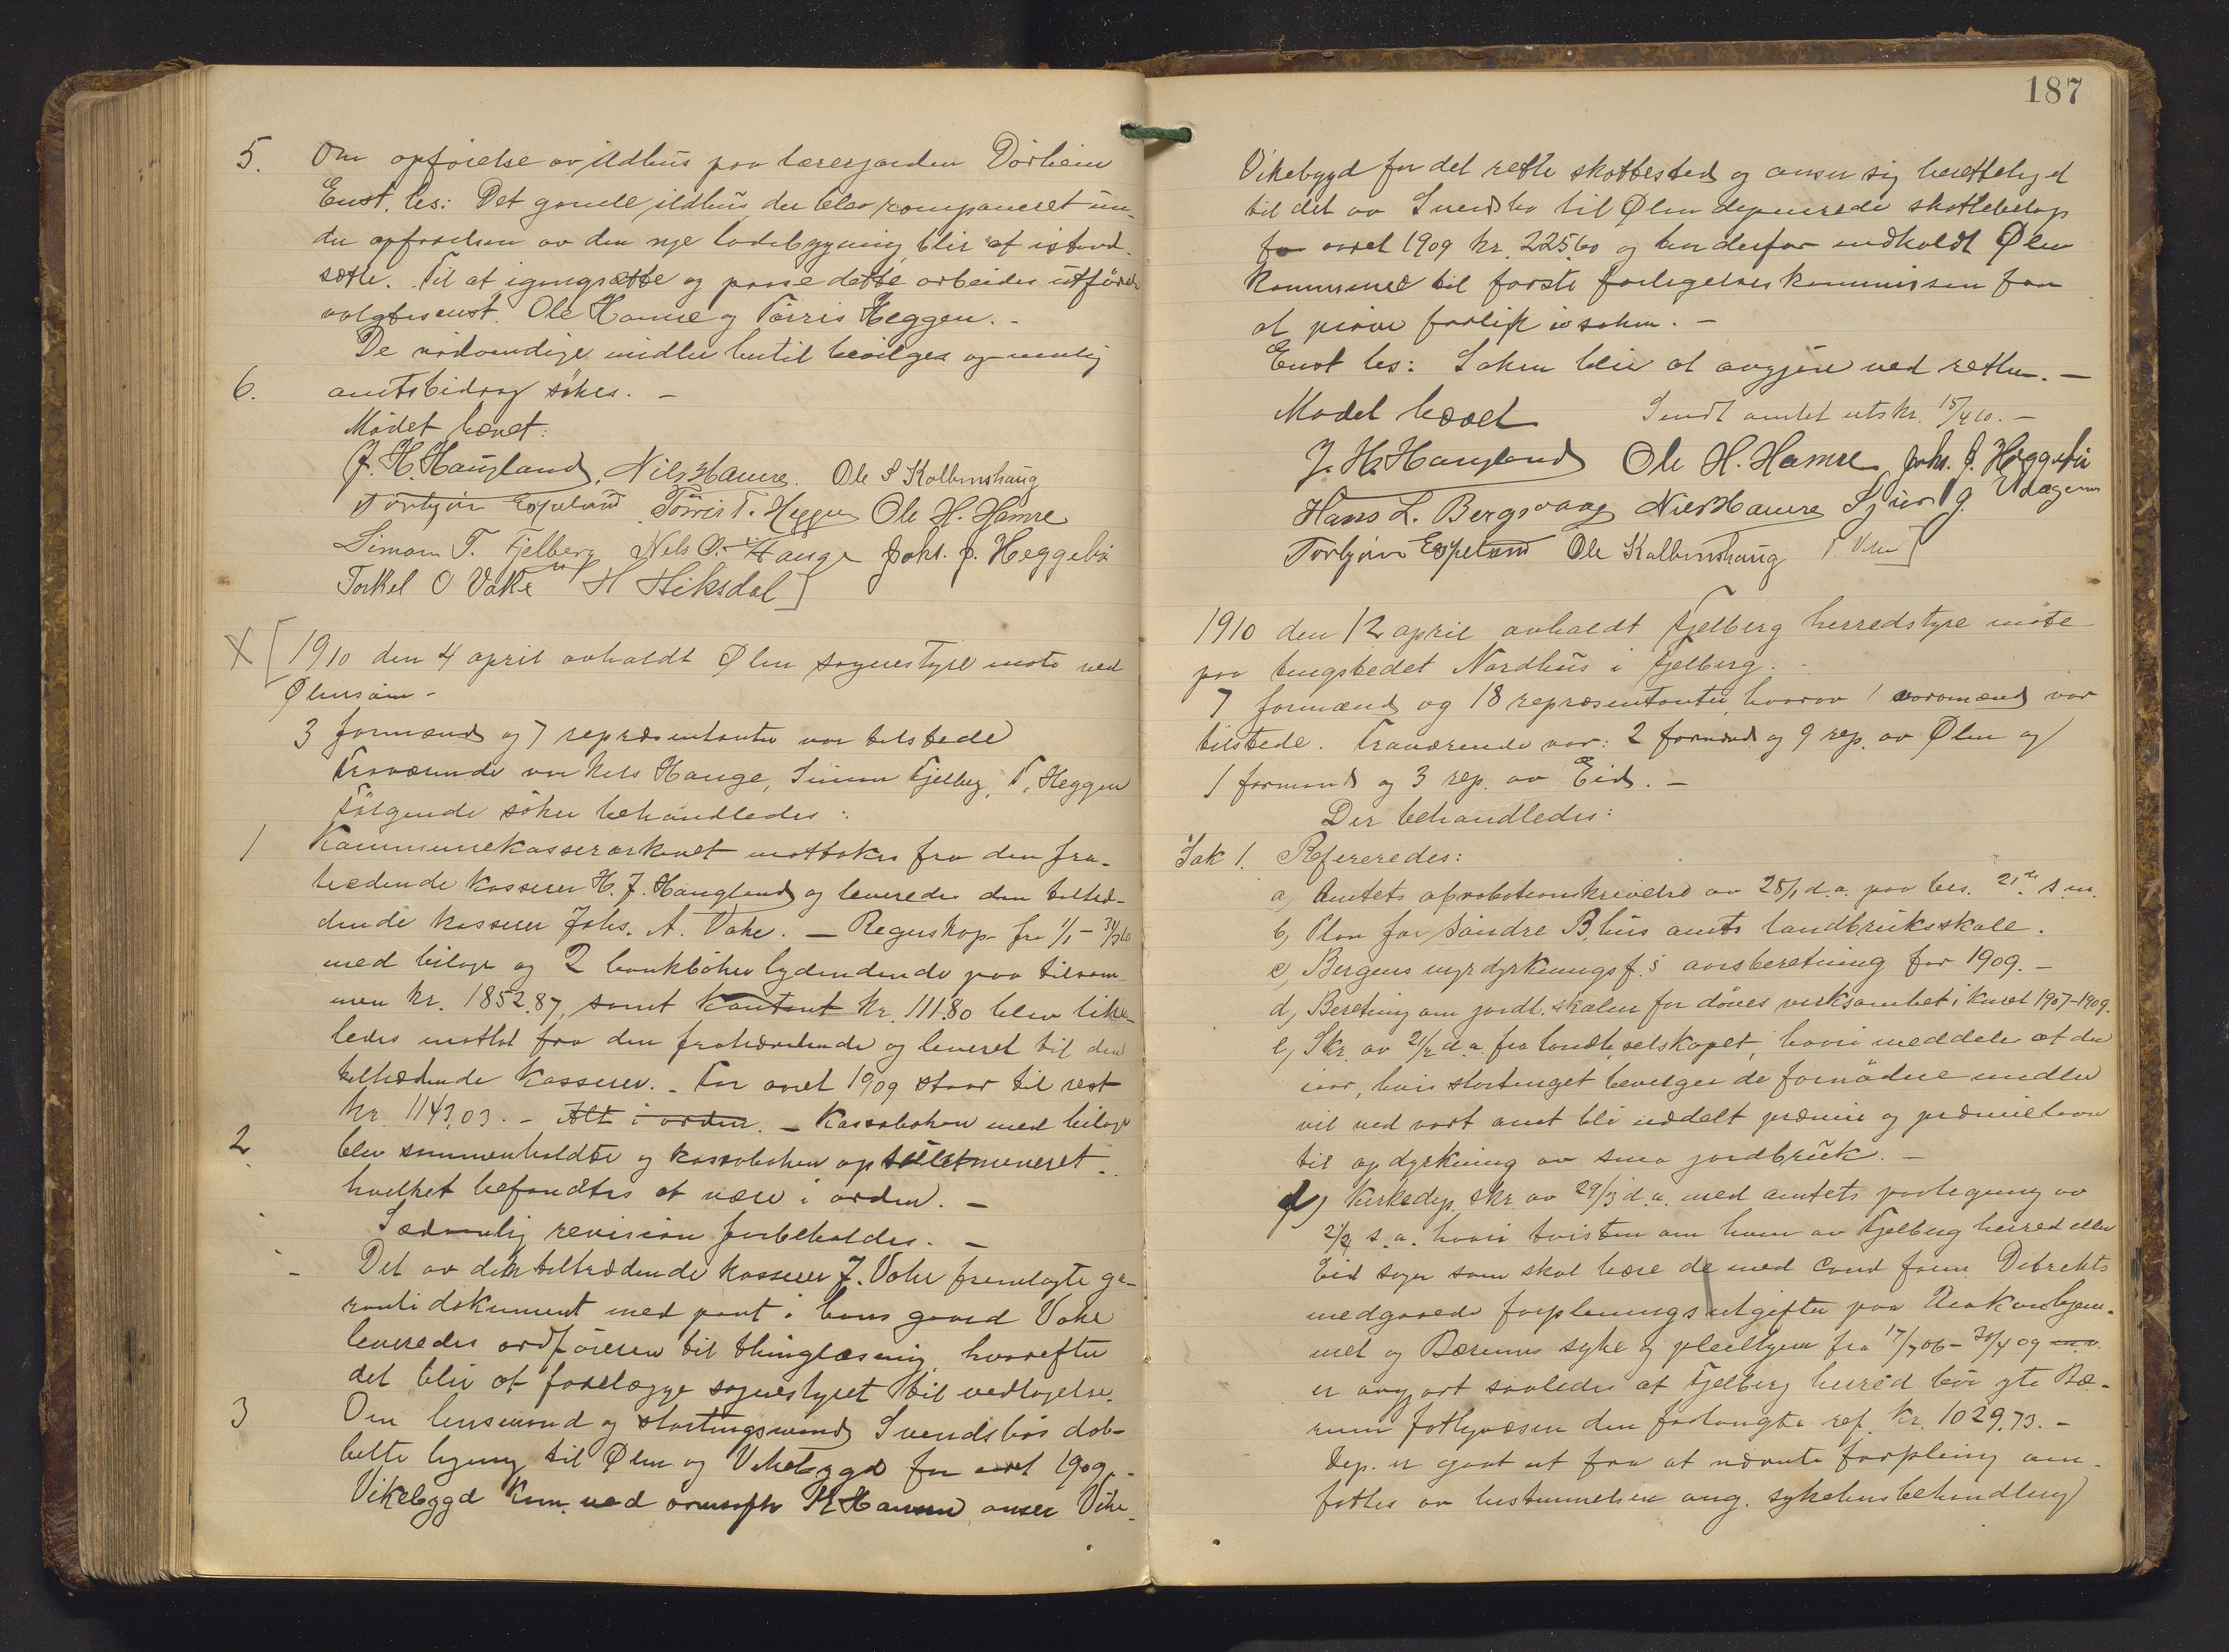 5. Om opførelse av ildhus paa lærerjorden Dørheim
Enst. bes: Det gamle ildhus der blev romponeret un-
der opførelsen av den nye ladebygning blir at istand-
sætte. Til at igangsætte og passe dette arbeides utførelse
valgtes enst. Ole Hamre og Tørris Heggen. -
De nødvendige midler hertil bevilges og mulig
6. amtsbidrag søkes. -
Mødet hævet:
J. H. Haugland, Nils Hamre. Ole S Kolbenshaug
Torbjørn Espeland Tørris T. Heggen Ole H. Hamre
Simon T. Fjelberg Nels O. Hauge Johs. J. Heggebø
Torkel O Vake H Hiksdal]
X [1910 den 4 april avholdt Ølen sognestyre møte ved
Ølensøen -
3 formænd og 7 repræsentanter var tilstede
Fraværende var Nels Hauge, Simon Fjelberg, T. Heggen
Følgende saker behandledes:
1 Kommunekasserarkivet mottokes fra den fra-
trædende kasserer H. J. Haugland og leveredes den tiltræ-
dende kasserer Johs. A. Vake. - Regnskap fra 1/1 - 31/3 10
med bilage og 2 bankbøker lydendende paa tilsam-
men kr. 1852.87, samt kontant kr. 111.80 blev like-
ledes mottat fra den fratrædende og leveret til den
tiltrædende kasserer. - For aaret 1909 staar til rest
kr. 1143,03. - Alt i orden. - Kassaboken med bilage
2. blev sammenholdte og kassaboken op
hvilket befandtes at være i orden. -
Sædvanlig revision forbeholdes. -
- Det av den tiltrædende kasserer J. Vake fremlagte ga-
rantidokument med pant i hans gaard Vake
leveredes ordføreren til thinglæsning, hvorefter
det blir at forelægge sognestyret til vedtagelse.
3 Om lensmand og stortingsmand Svendsbøs dob-
belte ligning til Ølen og Vikebygd for aaret 1909. -
Vikebygd kom. ved H Hamre anser Vike-
187
Vikebygd for det rette skattested og anser sig berettiget
til det av Svendsbø til Ølen deponerede skattebeløp
for aaret 1909 kr. 225.60 og har derfor indkaldt Ølen
kommune til første forligelseskommission for
at prøve forlik i saken. -
Enst bes: Saken blir at avgjøre ved retten. -
Mødet hævet Sendt amtet utskr. 15/4 10. -
J. H. Haugland Ole H. Hamre Johs. J. Heggebø
Hans L. Bergsvaag Nils Hamre Sjur J.
Torbjørn Espeland Ole Kolbenshaug T. Vake]
1910 den 12 april avholdt Fjelberg herredstyre møte
paa tingstedet Nordhus i Fjelberg. -
7 formænd og 18 repræsentanter, hvorav 1 varamand var
tilstede. Fraværende var: 2 formænd og 9 rep. av Ølen og
1 formand og 3 rep. av Eid. -
Der behandledes:
Sak 1. Refereredes:
a, Amtets aprobationskrivelse av 28/1 d.a. paa bes. 21de s.m.
b, Plan for søndre B.hus amts landbruksskole.
c, Bergens myrdyrkningsf.s aarsberetning for 1909. -
d, Beretning om jordb. skolen for døves virksomhet i kurset 1907-1909.
e, Skr. av 21/2 d.a. fra landh. selskapet, hvori meddeles at der
iaar, hvis stortinget bevilger de fornødne midler
vil ved vort amt bli uddelt præmie og præmielaan
til opdyrkning av smaa jordbruk. -
f, Kirkedep. skr. av 29/3 d.a. med amtets paategning av
2/4 s.a. hvori tvisten om hvem av Fjelberg herred eller
Eid sogn som skal bære de med cand farm. Dibrekts
medgaaede forpleiningsutgifter paa Blaakorshjem-
met og Bærums syke og pleiehjem fra 17/7 06 - 30/4 09 m.v.
er avgjort saaledes at Fjelberg herred bør yte Bæ-
rum fattigvæsen den forlangte ref. kr. 1029.73. -
Dep. er gaat ut fra at nævnte forpleining om-
fattes av bestemmelsen ang. sykehusbehandling